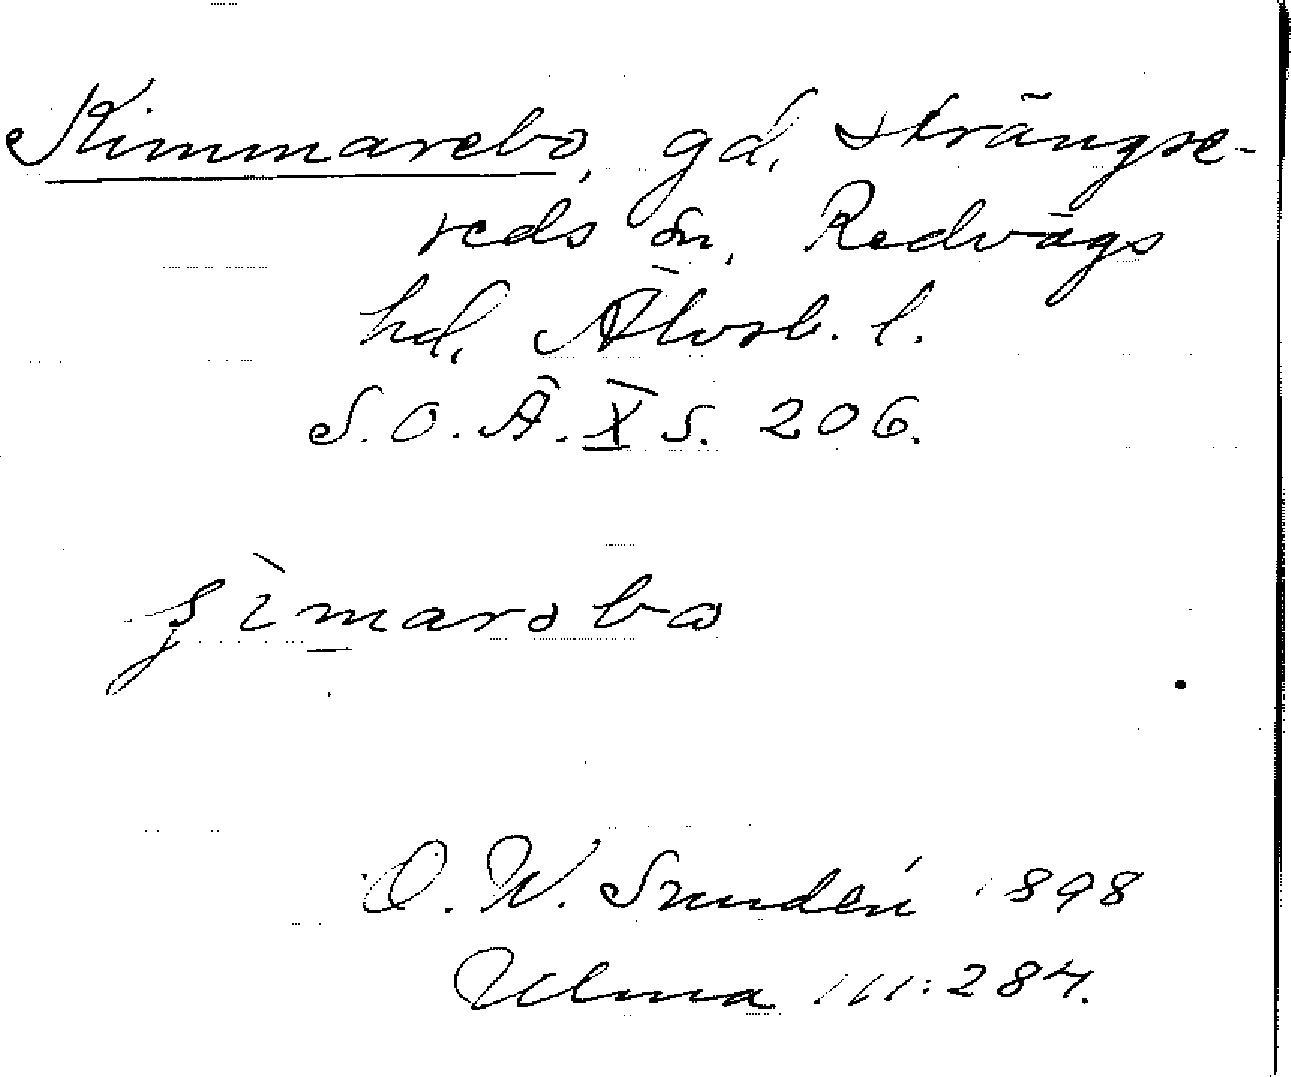 Kimmarebo, gd, Strängse-
reds sn, Redvägs
hd, Älvsb. l.
S.O.Ä. X s. 206.
marəbo
O. W. Sundén 1898
Ulma 111:284.